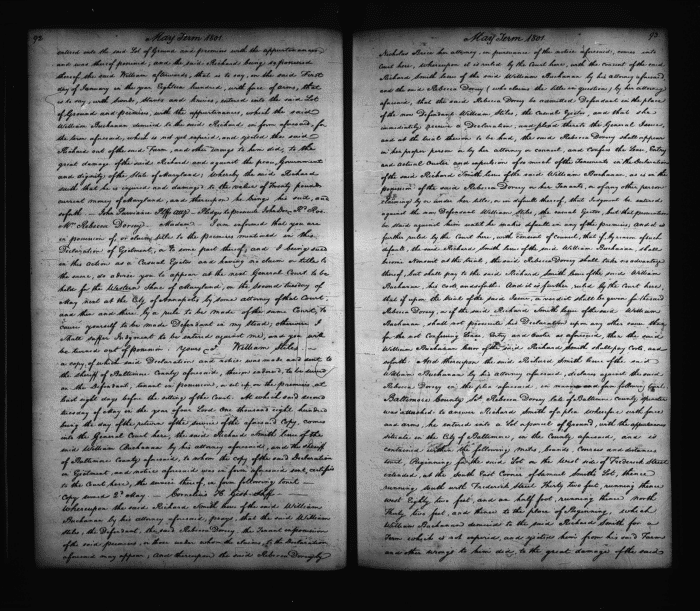 92
May Term 1801
entered into the said Lot of Ground and premises with the appurtenances
and was thereof possessed, and the said Richard being so possessed
thereof the said William afterwards, that is to say, on the said First
day of January in the year Eighteen hundred, with force of arms, that
is to say, with swords, staves and knives, entered into the said Lot
of Ground and premises with the appurtenances, which the said
William Buchanan demised to the said Richard in form aforesaid, for
the term aforesaid, which is not yet expired, and ejected the said
Richard out of the said Farm, and other wrongs to him did, to the
great damage of the said Richard and against the peace Government
and dignity of the State of Maryland; Whereby the said Richard
saith that he is injured and damaged to the value of Twenty pounds
current money of Maryland, and thereupon he brings his suit, and
so forth — John Purviance Plffs Atty Pledges to prosecute John Doe Rd. Roe
Mrs. Rebecca Dorsey. Madam. I am informed that you are
in possession of, or claim title to the premises mentioned in this
Declaration of Ejectment, or to some part thereof, and I being sued
in this Action as a Casual Ejector and having no claim or title to
the same, do advise you to appear at the next General Court to be
held for the Western Shore of Maryland, on the second tuesday of
May next at the City of Annapolis by some attorney of that Court;
and then and there, by a rule to be made of the same Court, to
cause yourself to be made Defendant in my Stead; otherwise I
Shall suffer Judgment to be entered against me, and you will
be turned out of possession. Yours &c. William Stiles —
a copy of which said Declaration and notice was made and sent to
the Sheriff of Baltimore County aforesaid, thereon endorsed, to be served
on the Defendant, tenant in possession, or set up on the premises, at
least eight days before the sitting of the Court. At which said second
tuesday of May in the year of our Lord One thousand eight hundred
being the day of the return of the service of the aforesaid Copy, comes
into the General Court here, the said Richard Smith lessee of the said
William Buchanan by his attorney aforesaid, and the Sheriff
of Baltimore County aforesaid, to whom the copy of the said Declaration
in Ejectment, and notice aforesaid was in form aforesaid sent, certifies
to the Court here, the service thereof, in form following to wit —
Copy served 2d May — Cornelius H. Gist Shff —
Whereupon the said Richard Smith lessee of the said William
Buchanan by his attorney aforesaid, prays, that the said William
Stiles, the Defendant, the said Rebecca Dorsey, the Tenant in possession
of the said premises, or those under whom she claims, to the Declaration
aforesaid may appear; And thereupon the said Rebecca Dorsey by
93
May Term 1801
Nicholas Brice her attorney, in pursuance of the notice aforesaid, comes into
Court here, Whereupon it is ruled by the Court here, with the consent of the said
Richard Smith lessee of the said William Buchanan by his attorney aforesaid
and the said Rebecca Dorsey (who claims the title in question,) by her attorney
aforesaid, that the said Rebecca Dorsey be admitted Defendant in the place
of the now Defendant William Stiles, the Casual Ejector, and that she
immediately receive a Declaration, and plead thereto the General Issue,
and at the trial thereon to be had, the said Rebecca Dorsey shall appear
in her proper person or by her attorney or counsel, and Confess the Lease, Entry
and actual Ouster and expulsion of so much of the Tenements in the Declaration
of the said Richard Smith lessee of the said William Buchanan, as is in the
possession of the said Rebecca Dorsey or her Tenants, or of any other person
claiming by or under her title, or in default thereof, that Judgment be entered
against the now Defendant William Stiles, the casual Ejector, but that prosecution
be staid against him until she makes default in any of the premises, and it is
further ruled by the Court here, with consent of Counsel, that if by reason of such
default, the said Richard Smith lessee of the said William Buchanan, shall
become Nonsuit at the trial, the said Rebecca Dorsey shall take no advantage
thereof, but shall pay to the said Richard Smith lessee of the said William
Buchanan, his costs, and so forth. And it is further ruled by the Court here,
that if upon the trial of the said Issue, a verdict shall be given for the said
Rebecca Dorsey, or if the said Richard Smith lessee of the said William
Buchanan, shall not prosecute his Declaration upon any other cause than
for the not confessing Lease, Entry and Ouster as aforesaid, that the said
William Buchanan lessor of the said Richard Smith shall pay Costs, and
so forth. And thereupon the said Richard Smith lessee of the said
William Buchanan by his attorney aforesaid, declares against the said
Rebecca Dorsey in the plea aforesaid, in manner and form following to wit.
Baltimore County Sct. Rebecca Dorsey late of Baltimore County spinster
was attached to answer Richard Smith of a plea wherefore with force
and arms, he entered into a Lot or parcel of Ground, with the appurtenances
situate in the City of Baltimore, in the County aforesaid, and is
contained within the following metes, bounds, Courses and distances
to wit, Beginning for the said Lot on the West side of Frederick Street
extended, at the South East Corner of Samuel Smith's Lot, thence
running south with Frederick Street Thirty two feet, running thence
west Eighty two feet, and an half foot, running thence north
Thirty two feet, and thence to the place of Beginning, which
William Buchanan demised to the said Richard Smith for a
Term which is not expired, and ejected him from his said Farm
and other wrongs to him did, to the great damage of the said